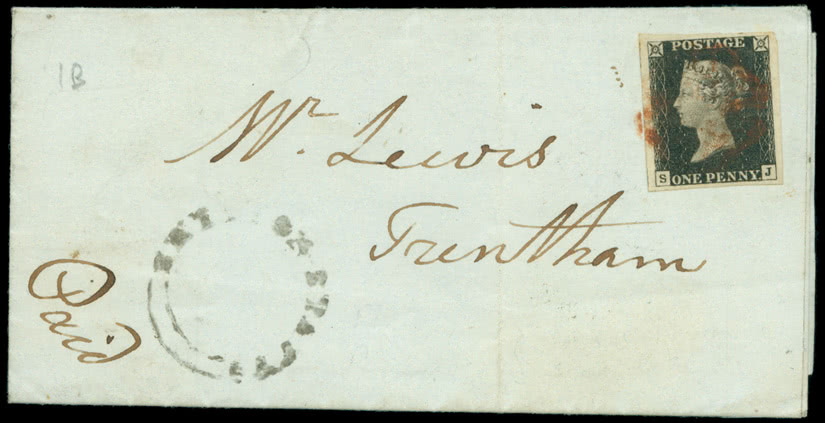 1B
POSTAGE
S J
ONE PENNY
Mr Lewis
Trentham
Paid